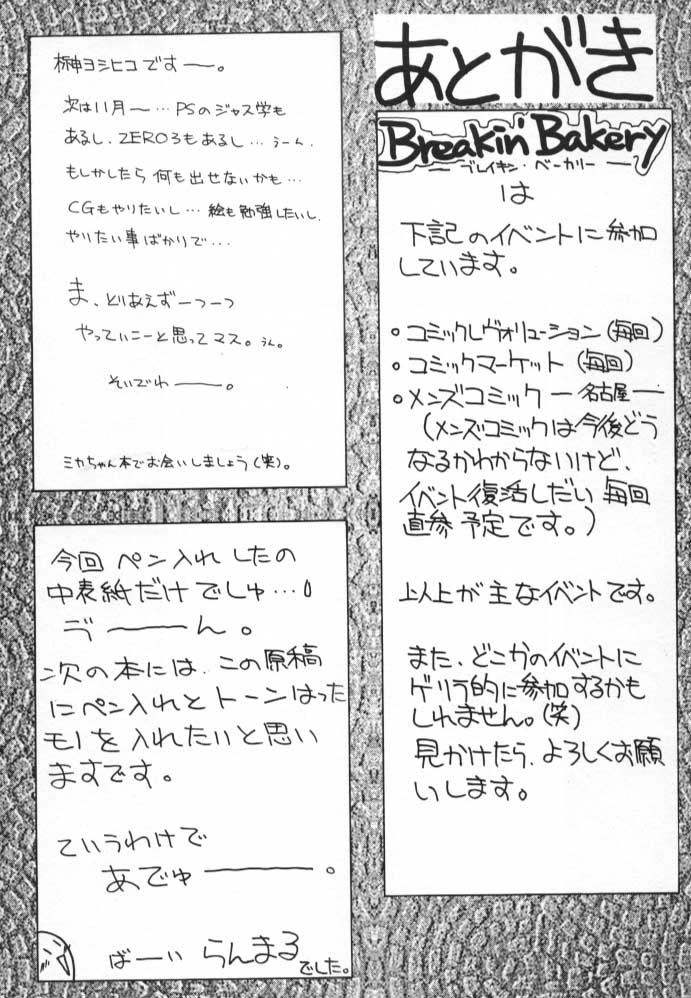 あとがき
Breakin' Bakery
ブレイキン・ベーカリー
は
下記のイベントに参加
しています。
○コミックレヴォリューション(毎回)
○コミックマーケット(毎回)
○メンズコミック ー名古屋ー
(メンズコミックは今後どう
なるかわからないけど、
イベント復活しだい毎回
直参予定です。)
以上が主なイベントです。
また、どこかのイベントに
ゲリラ的に参加するかも
しれません。(笑)
見かけたら、よろしくお願
いします。
榊ヨシヒコですー。
次は11月ー…PSのジャス学も
あるし、ZERO3もあるし…うーん、
もしかしたら何も出せないかも…
CGもやりたいし…絵も勉強したいし、
やりたい事ばかりで…
ま、とりあえずーつーつ
やっていこーと思ってマス。うん。
そいでわー。
ミカちゃん本でお会いしましょう(笑)。
今回ペン入れしたの
中表紙だけでしゅ…
ゔーーん。
次の本には、この原稿
にペン入れとトーンはった
モノを入れたいと思い
ますです。
ていうわけで
あでゅー。
ばーい らんまる
でした。